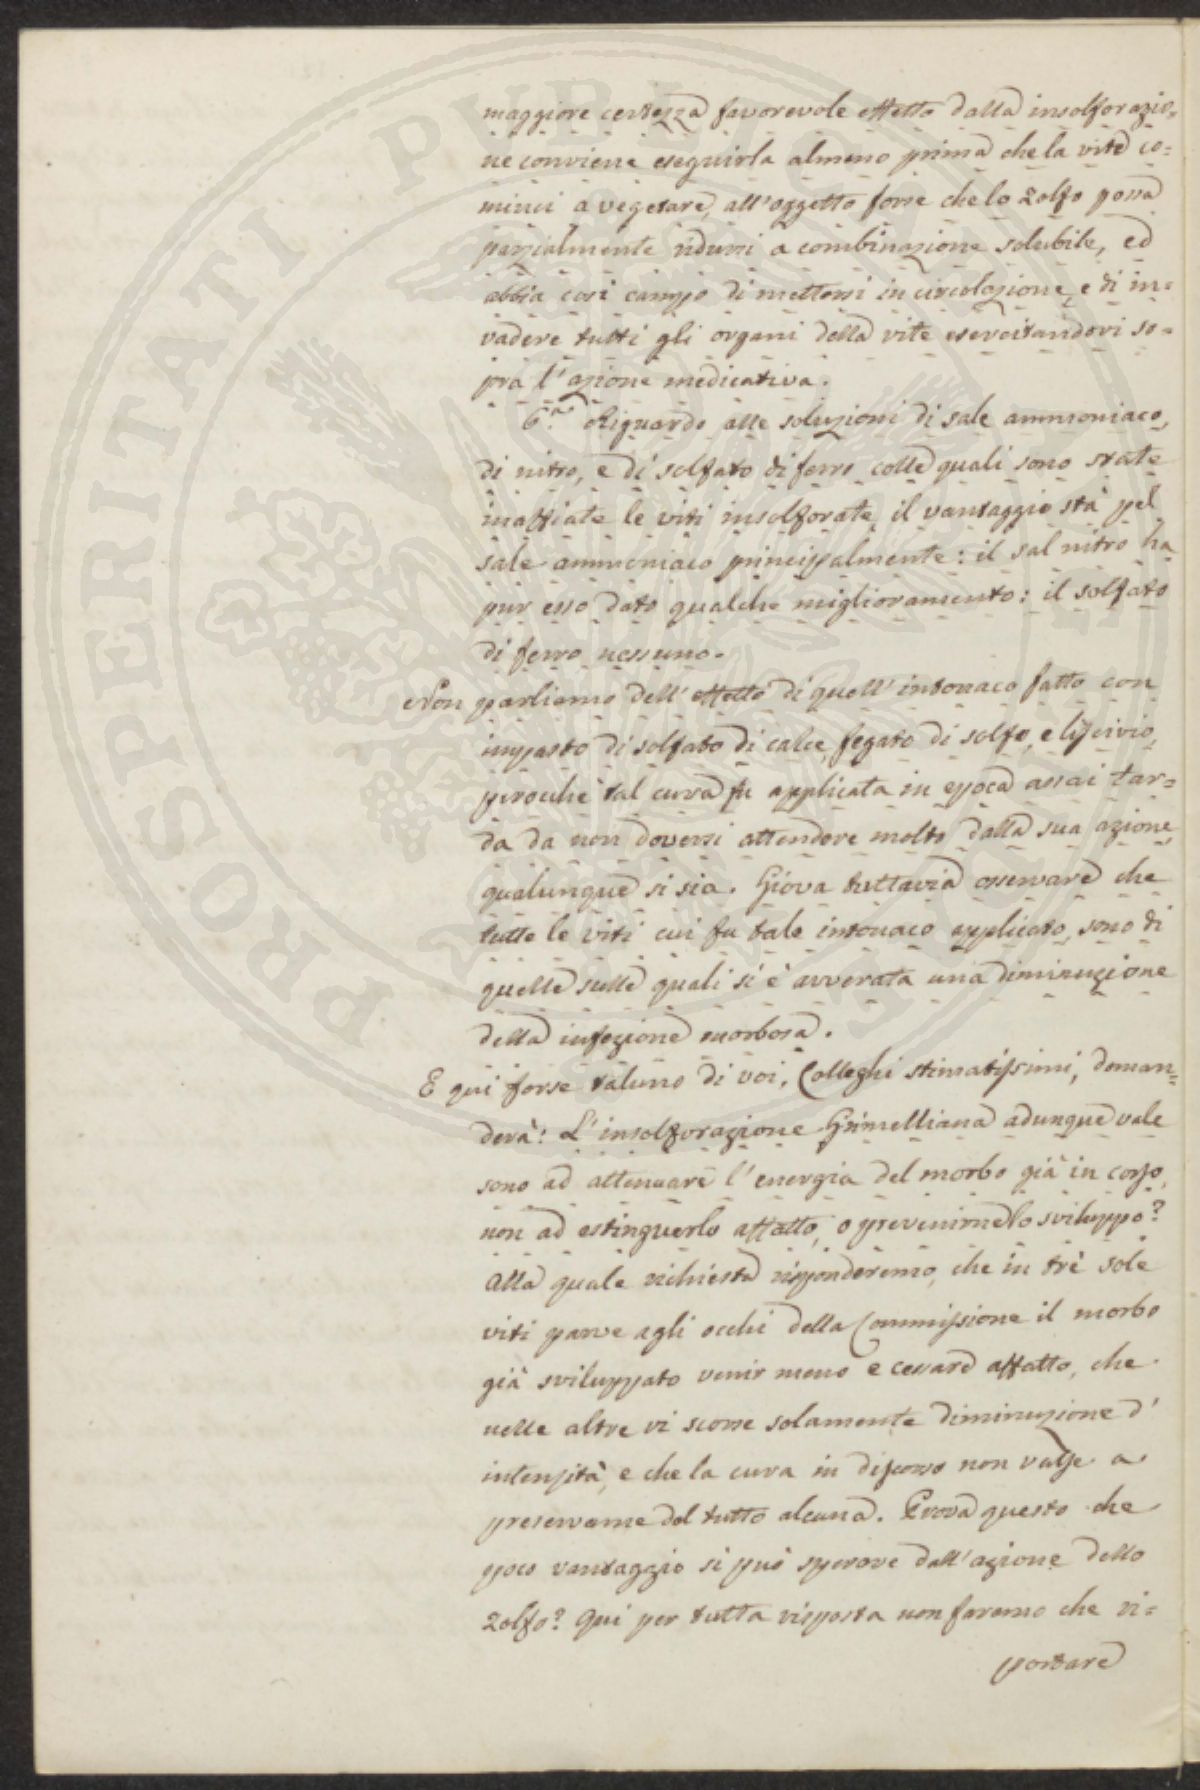 maggiore certezza favorevole effetto dalla insolforazio-
ne conviene eseguirla almeno prima che la vite co=
minci a vegetare, all'oggetto forse che lo zolfo possa
parzialmente ridursi a combinazione solubile, ed
abbia così campo di mettersi in circolazione, e di in=
vadere tutti gli organi della vite esercitandovi so=
pra l'azione medicativa.
6.ª Riguardo alle soluzioni di sale ammoniaco,
di nitro, e di solfato di ferro colle quali sono state
inaffiate le viti insolforate, il vantaggio stà pel
sale ammoniaco principalmente: il sal nitro ha
pur esso dato qualche miglioramento: il solfato
di ferro nessuno.
Non parliamo dell'effetto di quell'intonaco fatto con
impasto di solfato di calce, fegato di solfo, e liscivio,
perocchè tal cura fu applicata in epoca assai tar=
da da non doversi attendere molto dalla sua azione
qualunque si sia. Giova tuttavia osservare che
tutte le viti cui fu tale intonaco applicato, sono di
quelle sulle quali si è avverata una diminuzione
della infezione morbosa.
E qui forse taluno di voi, Colleghi stimatissimi, doman=
derà: L'insolforazione Grimelliana adunque vale
sono ad attenuare l'energia del morbo già in corso,
non ad estinguerlo affatto, o prevenirne lo sviluppo?
Alla quale richiesta risponderemo, che in trè sole
viti parve agli occhi della Commissione il morbo
già sviluppato venir meno e cessare affatto, che
nelle altre vi scorse solamente diminuzione d'
intensità, e che la cura in discorso non valse a
preservarne del tutto alcuna. Prova questo che
poco vantaggio si può sperare dall'azione dello
zolfo? Qui per tutta risposta non faremo che ri=
portare
PROSPERITATI PUBLICAE